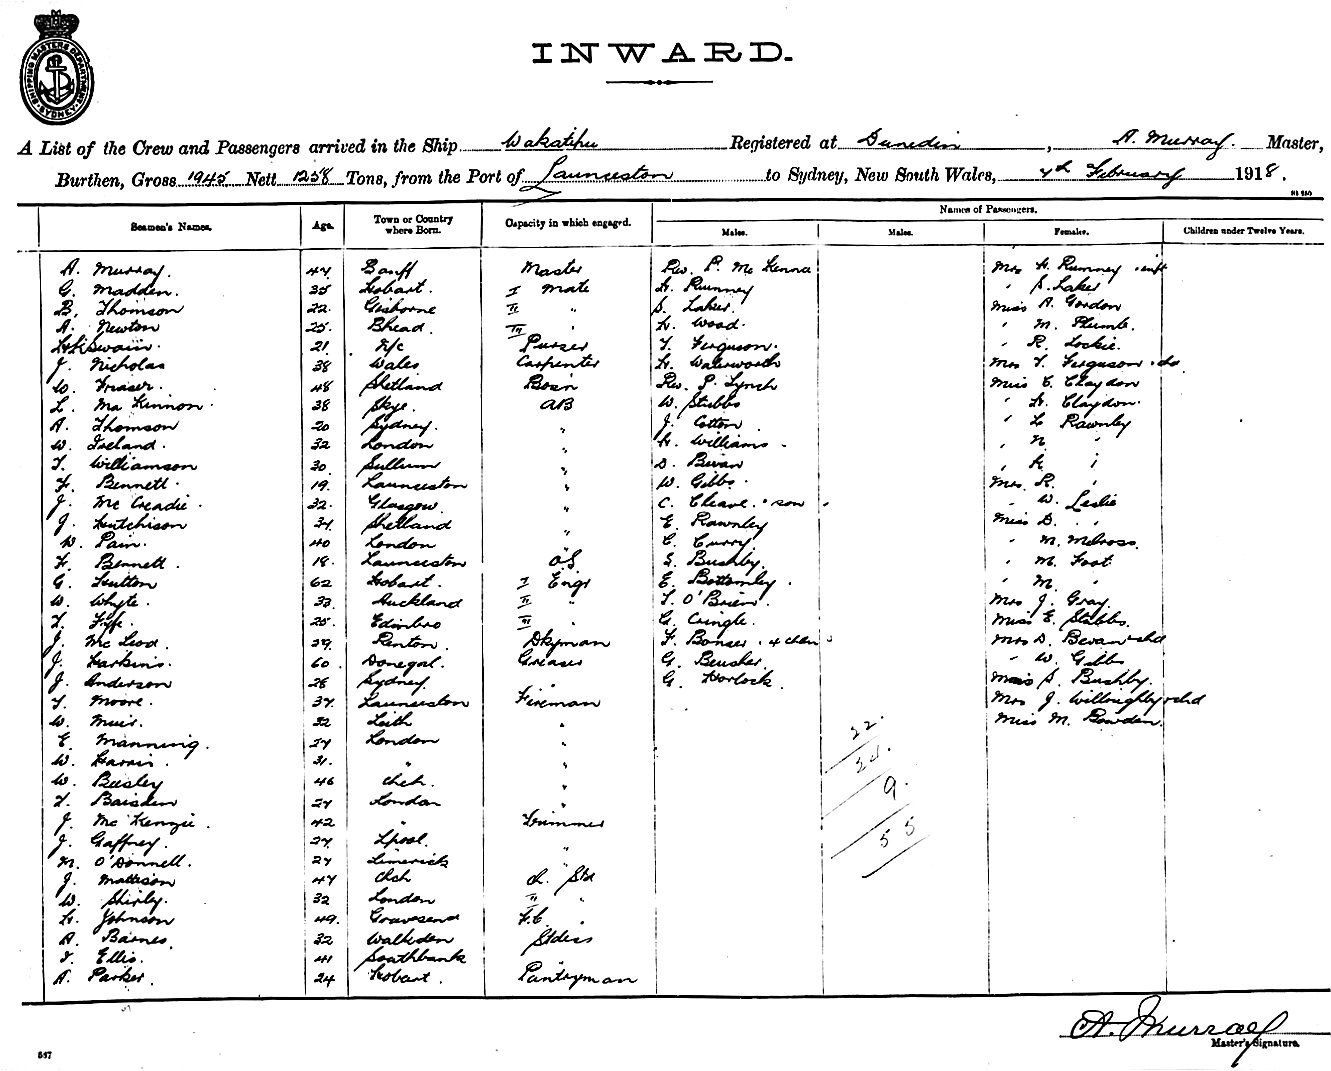 SHIPPING MASTERS DEPARTMENT SYDNEY
INWARD.
A List of the Crew and Passengers arrived in the Ship Wakatipu Registered at Dunedin, A. Murray. Master,
Burthen, Gross 1945 Nett 1258 Tons, from the Port of Launceston to Sydney, New South Wales, 4th February 1918.
Names of Passengers.
Seamen's Names. Age. Town or Country where Born. Capacity in which engaged. Males. Males. Females. Children under Twelve Years.
A. Murray. 47 Banff Master Rev. P. Mc Kenna Mrs H. Rumney
G. Madden. 35 Hobart. I Mate H. Rumney " S. Laker
B. Thomson 22. Gisborne II " S. Laker. Miss A. Gordon
A. Newton 25. Bhead. III " H. Wood. " M. Plumb.
Swain. 21 N/c Purser T. Ferguson. " R. Lockie.
J. Nicholas 38 Wales Carpenter H. Waterworth Mrs T. Ferguson
W. Fraser. 48 Shetland Bosn Rev. P. Lynch Miss E. Claydon
L. Mc Kinnon. 38 Skye. AB W. Stubbs " H. Claydon.
A. Thomson 20 Sydney. " J. Cotton " L Rawnley
W. Ireland. 32 London " H. Williams. " N "
T. Williamson 30 Sullum " D. Bevan " K "
F. Bennett. 19. Launceston " W. Gibbs. Mrs. R. "
J. Mc Creadie. 32. Glasgow. " C. Cleave. & son " W. Leslie
J. Hutchison 34 Shetland " E. Rawnley Miss D. "
W. Pain. 40 London " C. Curry " M. Melross.
F. Bennett. 18. Launceston OS S. Bushby. " M. Foot
G. Hutton 62 Hobart. I Engr E. Bottomley. " M. "
W. Whyte. 33 Auckland II " T. O'Brien. Mrs J. Gray.
T. Fyfe. 25. Edinbro III " G. Cringle. Miss E. Stubbs.
J. Mc Leod. 29. Renton Dkyman F. Bonser. & 4 chn Mrs D. Bevan & chd
J. Harkins. 60 Donegal. Greaser G. Beusher. " W. Gibbs
J. Anderson 28 Sydney. " G. Horlock. Miss S. Bushby.
T. Moore. 37. Launceston Fireman Mrs J. Willoughby & chd
W. Muir. 32 Leith " Miss M. Bowden.
E. Manning. 27 London "
W. Harris. 31. " "
W. Busley 46 Chch. "
T. Baisden 27 London "
J. Mc Kenzie. 42 " Trimmer
J. Gaffney. 27. Lpool. "
M. O'Donnell. 27 Limerick "
J. Mattison 47 Chch Ch. Std
W. Shirly. 32 London II "
H. Johnson 49. Gravesend F.C. "
A. Barnes. 32 Walkden Stdess
T. Ellis. 41 Southbank "
A. Parker. 24 Hobart. Pantryman
22.
24.
9.
55
A. Murray
Master's Signature.
547